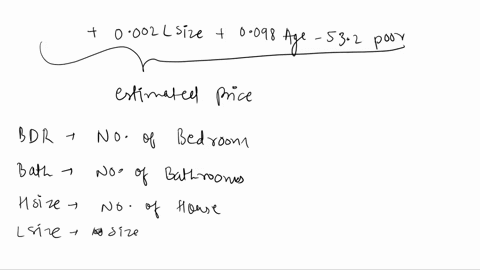 + 0.002 Lsize + 0.098 Age - 53.2 poor
estimated price
BDR → No. of Bedroom
Bath → No. of Bathrooms
Hsize → No. of House
Lsize → size